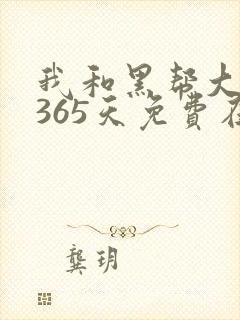 我和黑帮大
365天免費在
龔玥